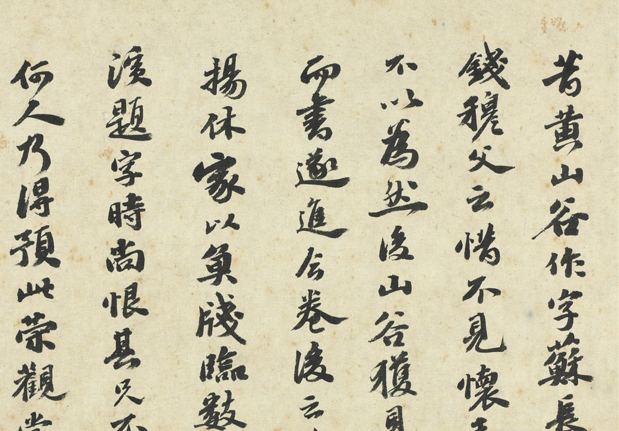 昔黄山谷作字蘇長
錢穆父云惜不見懷
不以為然後山谷獲見
而書遂進今卷後云
揚休家以奠牋臨數
溪題字時尚恨其只不
何人乃得預此榮觀當